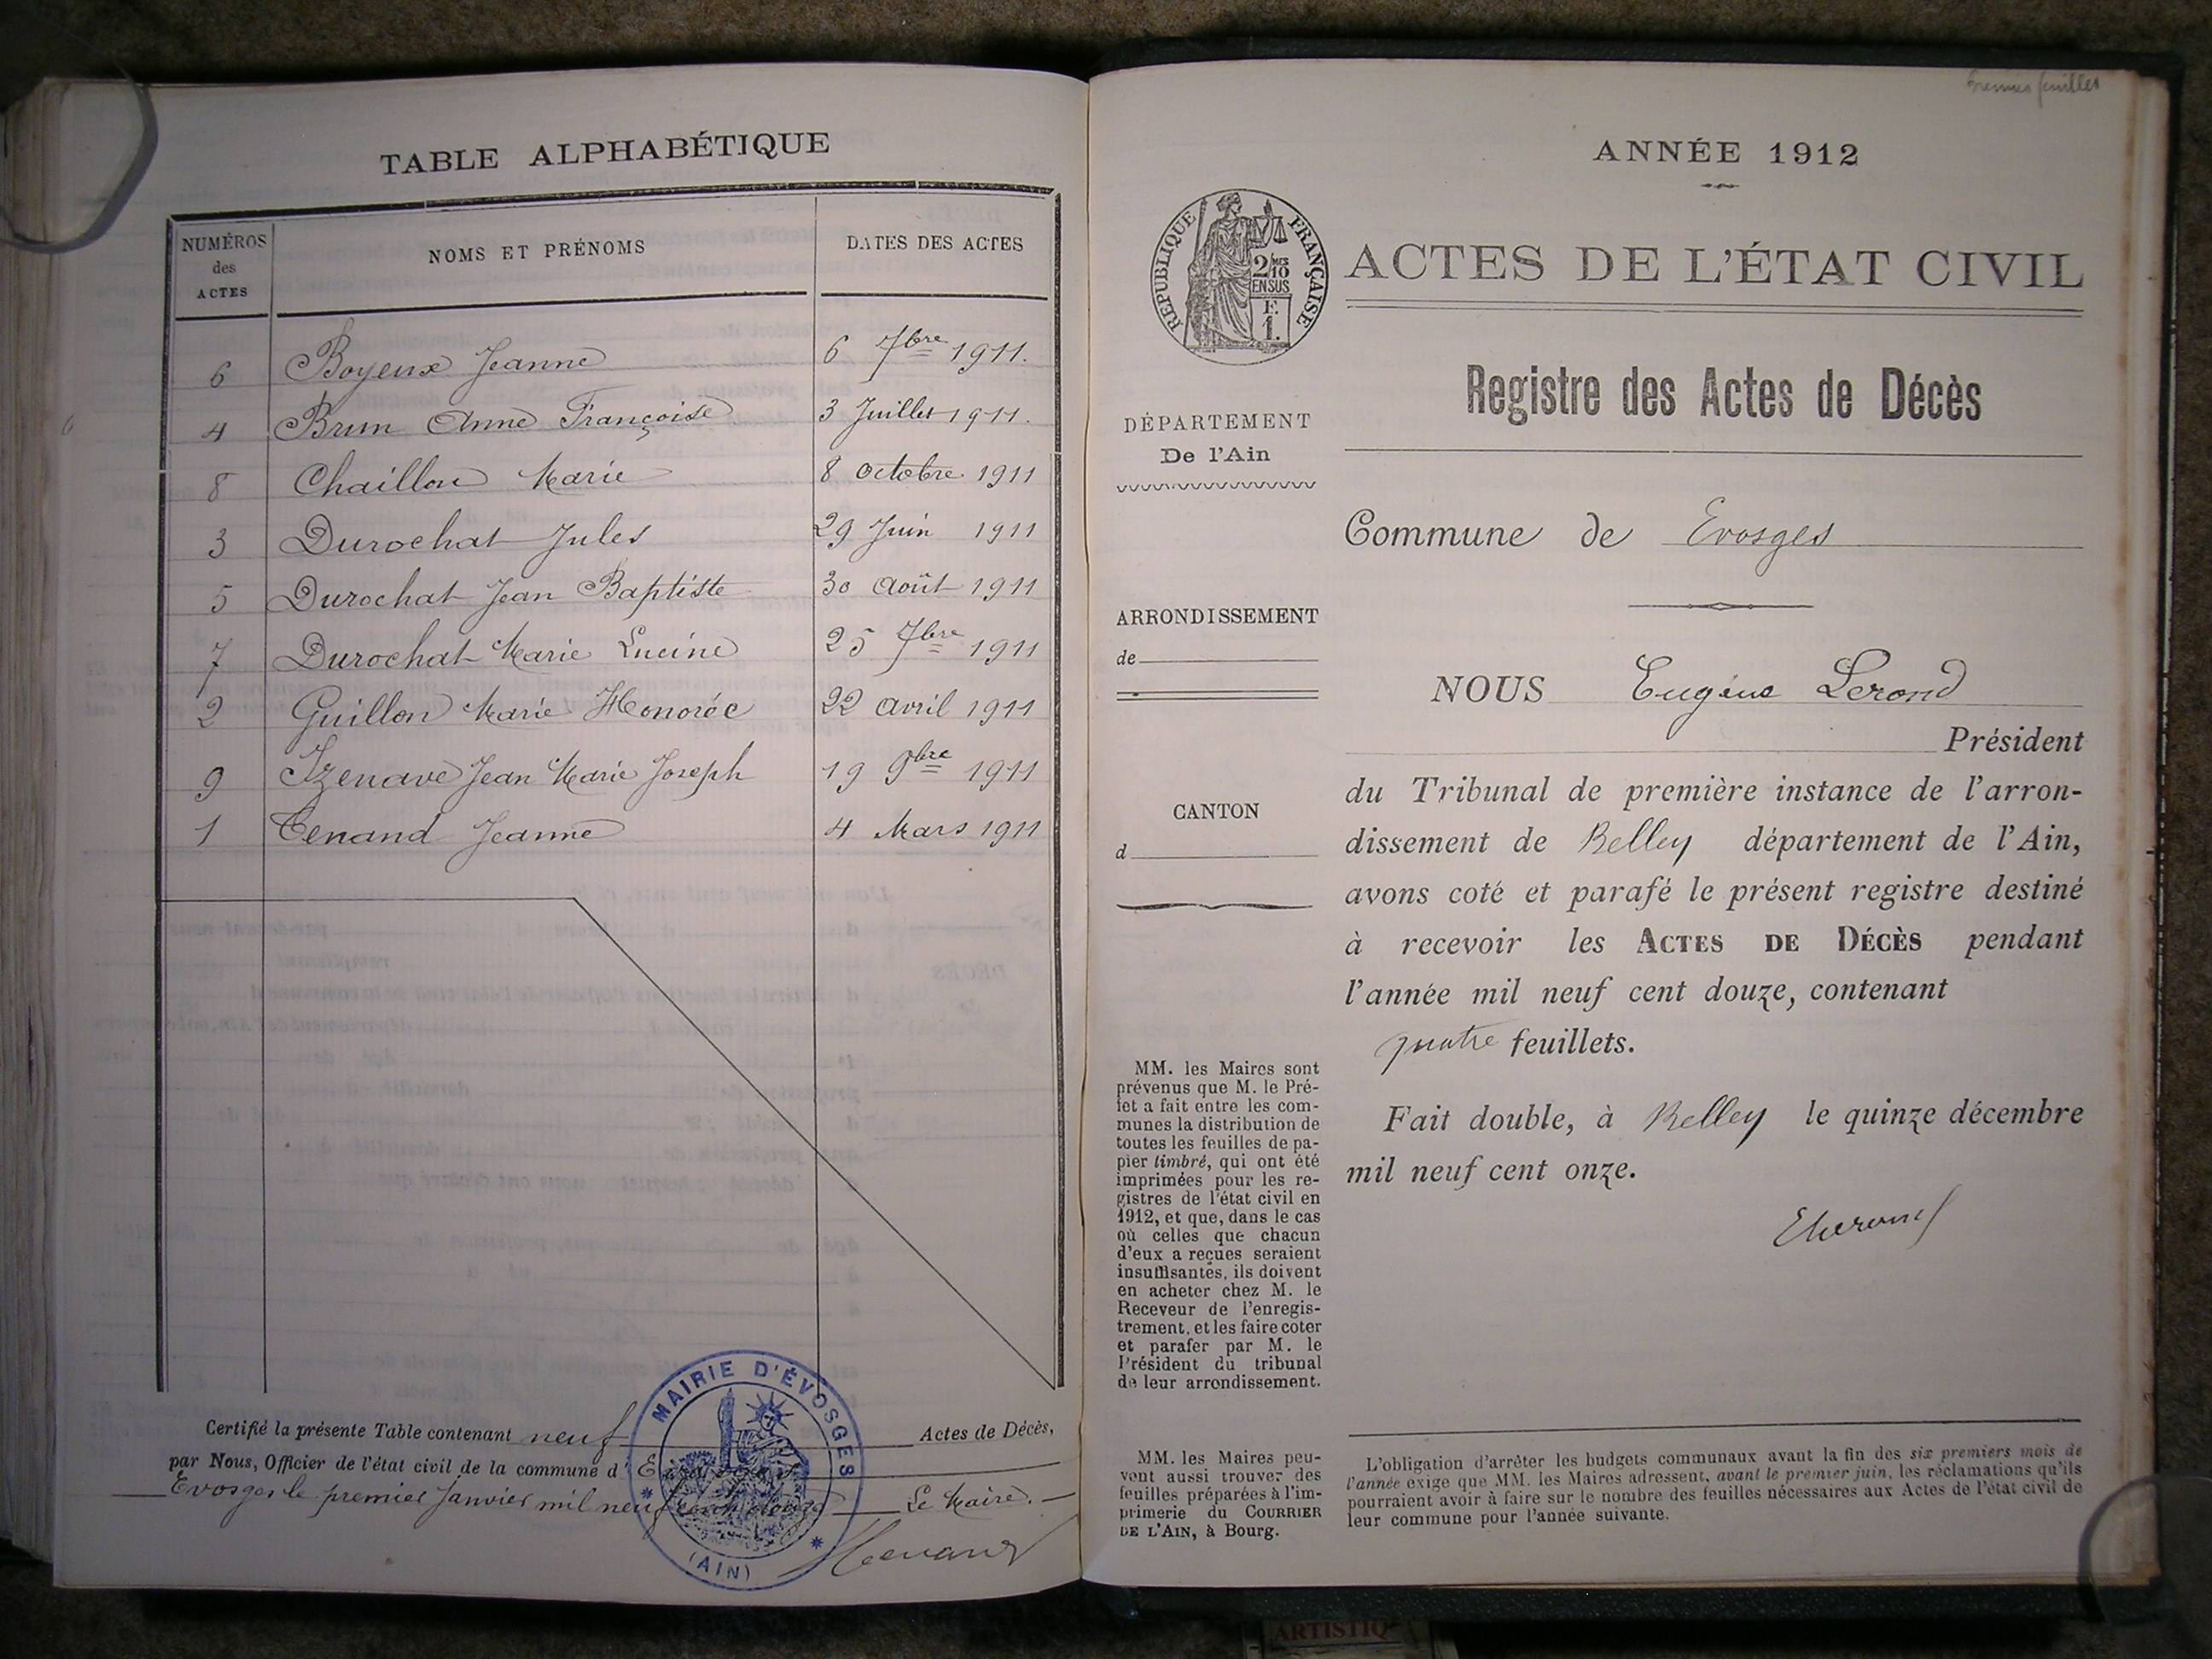 TABLE ALPHABÉTIQUE
NUMÉROS des ACTES
NOMS ET PRÉNOMS
DATES DES ACTES
6 Boyeux Jeanne 6 7bre 1911.
4 Brun Anne Françoise 3 Juillet 1911.
8 Chaillon Marie 8 octobre 1911
3 Durochat Jules 29 Juin 1911
5 Durochat Jean Baptiste 30 Août 1911
7 Durochat Marie Lucine 25 7bre 1911
2 Guillon Marie Honorée 22 avril 1911
9 Izenave Jean Marie Joseph 19 9bre 1911
1 Tenand Jeanne 4 Mars 1911
Certifié la présente Table contenant neuf Actes de Décès,
par Nous, Officier de l'état civil de la commune d'Evosges
Evosges le premier Janvier mil neuf cent douze Le Maire.
Tenand
MAIRIE D'ÉVOSGES
(AIN)
Premier feuillet
ANNÉE 1912
RÉPUBLIQUE FRANÇAISE
2/10 MES
EN SUS
F.
1.
ACTES DE L'ÉTAT CIVIL
Registre des Actes de Décès
DÉPARTEMENT
De l'Ain
Commune de Evosges
ARRONDISSEMENT
de
NOUS Eugène Lerond
Président
du Tribunal de première instance de l'arron-
dissement de Belley département de l'Ain,
avons coté et parafé le présent registre destiné
à recevoir les ACTES DE DÉCÈS pendant
l'année mil neuf cent douze, contenant
quatre feuillets.
Fait double, à Belley le quinze décembre
mil neuf cent onze.
ELerond
CANTON
d
MM. les Maires sont
prévenus que M. le Pré-
fet a fait entre les com-
munes la distribution de
toutes les feuilles de pa-
pier timbré, qui ont été
imprimées pour les re-
gistres de l'état civil en
1912, et que, dans le cas
où celles que chacun
d'eux a reçues seraient
insuffisantes, ils doivent
en acheter chez M. le
Receveur de l'enregis-
trement, et les faire coter
et parafer par M. le
Président du tribunal
de leur arrondissement.
MM. les Maires peu-
vent aussi trouver des
feuilles préparées à l'im-
primerie du COURRIER
DE L'AIN, à Bourg.
L'obligation d'arrêter les budgets communaux avant la fin des six premiers mois de
l'année exige que MM. les Maires adressent, avant le premier juin, les réclamations qu'ils
pourraient avoir à faire sur le nombre des feuilles nécessaires aux Actes de l'état civil de
leur commune pour l'année suivante.
ARTISTIQ